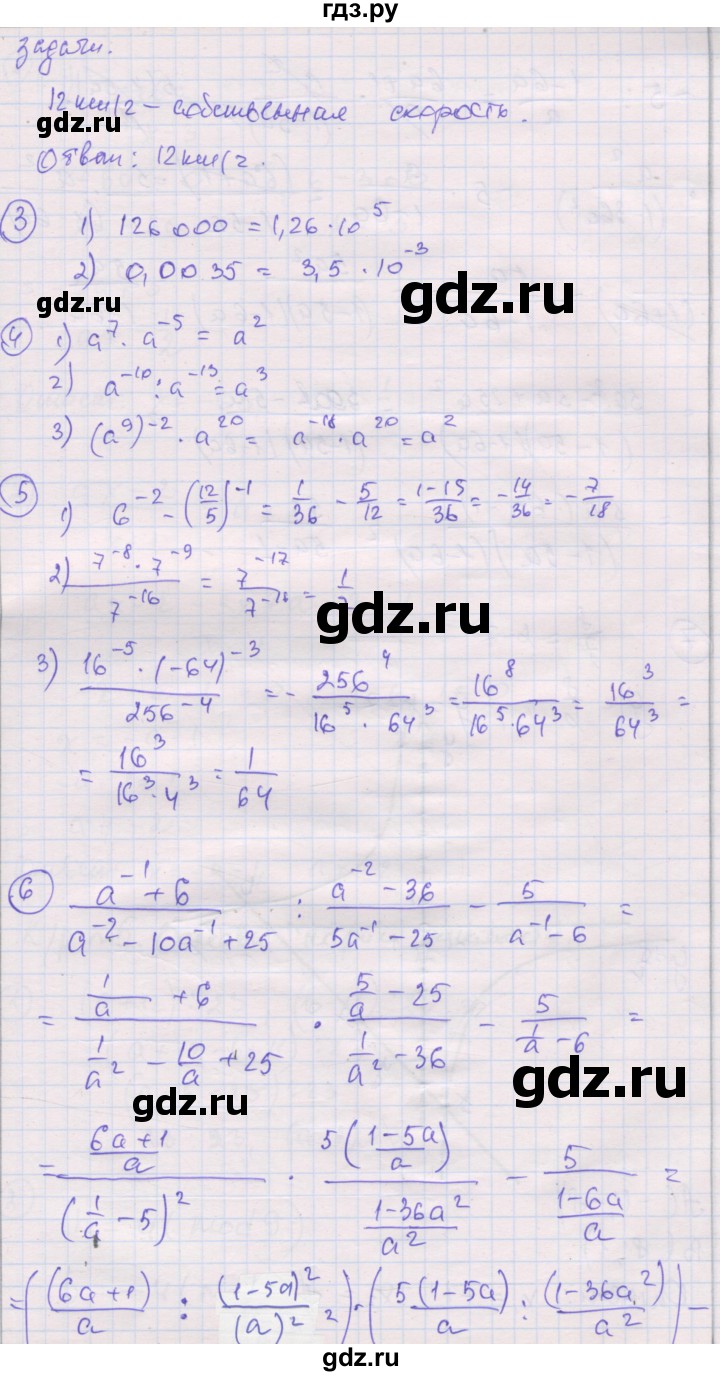 гдз.ру
задачи.
12 км/ч – собственная скорость.
gdz.ru gdz.ru
Ответ: 12 км/ч.
③ 1) 126 000 = 1,26 · 10^5
2) 0,0035 = 3,5 · 10^-3
gdz.ru gdz.ru
④ 1) a^7 · a^-5 = a^2
2) a^-10 : a^-13 = a^3
3) (a^9)^-2 · a^20 = a^-18 · a^20 = a^2
⑤ 1) 6^-2 - (12/5)^-1 = 1/36 - 5/12 = (1-15)/36 = -14/36 = -7/18
2) (7^-8 · 7^-9)/7^-16 = 7^-17/7^-16 = 1/
gdz.ru
3) (16^-5 · (-64)^-3)/256^-4 = - 256^4/(16^5 · 64^3) = 16^8/(16^5 · 64^3) = 16^3/64^3 =
= 16^3/(16^3 · 4^3) = 1/64
gdz.ru
⑥ (a^-1 + 6)/(a^-2 - 10a^-1 + 25) : (a^-2 - 36)/(5a^-1 - 25) - 5/(a^-1 - 6) =
= (1/a + 6)/(1/a^2 - 10/a + 25) · (5/a - 25)/(1/a^2 - 36) - 5/(1/a - 6) =
gdz.ru gdz.ru
= ((6a+1)/a)/(1/a - 5)^2 · (5((1-5a)/a))/((1-36a^2)/a^2) - 5/((1-6a)/a) =
gdz.ru
= ((6a+1)/a : (1-5a)^2/(a)^2) · (5(1-5a)/a : (1-36a^2)/a^2) -
gdz.ru gdz.ru